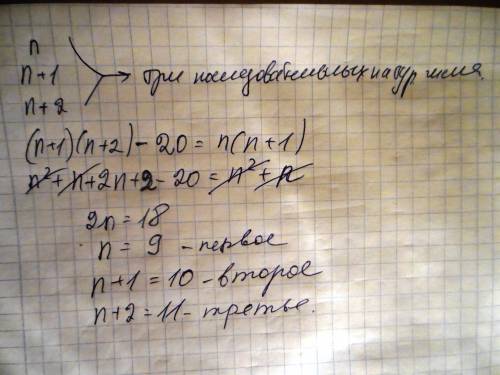 n
n+1 → три последовательных натур числа.
n+2
(n+1)(n+2) - 20 = n(n+1)
n²+n+2n+2-20 = n²+n
2n = 18
n = 9 - первое
n+1 = 10 - второе
n+2 = 11 - третье.